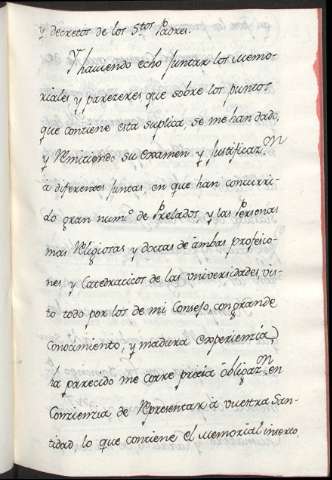 y decretos de los S.tos Padres.
Y haviendo echo juntar los Memo-
riales y parezeres que sobre los puntos
que contiene esta suplica, se me han dado,
y Remitiendo su examen y justificaz.n
a diferentes juntas, en que han concurri-
do gran num.o de Prelados y las Personas
mas Religiosas y doctas de ambas profesio-
nes y Catedraticos de las universidades, vis-
to todo por los de mi Consejo, con grande
conocimiento, y madura experiencia,
ha parecido me corre precisa obligaz.n en
Conciencia de Representar a vuestra San-
tidad lo que contiene el Memorial inserto